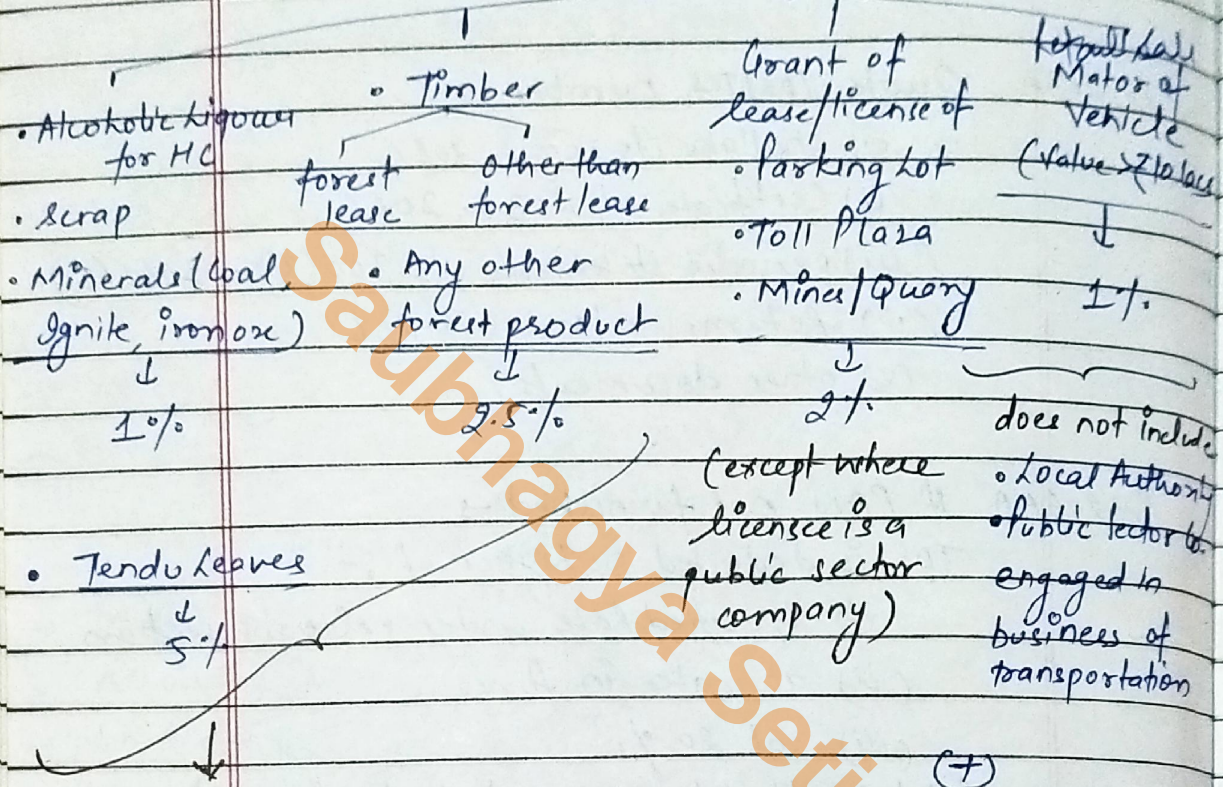 • Alcoholic Liquor
for HC
• scrap
• Minerals (Coal,
Ignite, iron ore)
↓
1%
• Tendu Leaves
↓
5%
• Timber
forest
lease
other than
forest lease
• Any other
forest product
↓
2.5%
Grant of
lease/license of
• Parking Lot
• Toll Plaza
• Mines/Quary
↓
2%
(except where
licensee is a
public sector
company)
Mator of
Vehicle
(Value >
↓
1%
does not include
• Local Authority
• Public sector co.
engaged in
business of
transportation
(7)
Saubhagya Seti